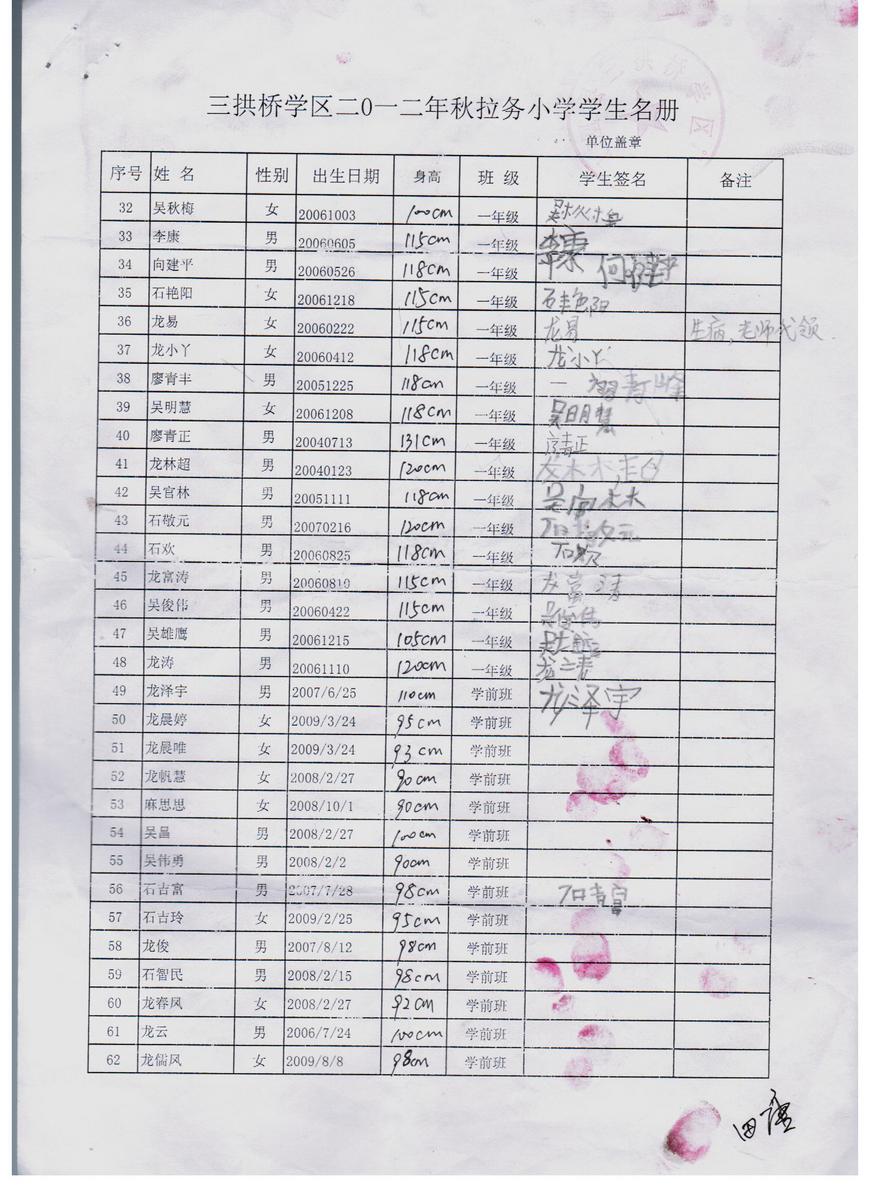 三拱桥学区二0一二年秋拉务小学学生名册
单位盖章
序号 姓 名 性别 出生日期 身高 班 级 学生签名 备注
32 吴秋梅 女 20061003 100cm 一年级 吴秋梅
33 李康 男 20060605 115cm 一年级 李康
34 向建平 男 20060526 118cm 一年级
35 石艳阳 女 20061218 115cm 一年级 石艳阳
36 龙易 女 20060222 115cm 一年级 龙易 生病,老师代领
37 龙小丫 女 20060412 118cm 一年级 龙小丫
38 廖青丰 男 20051225 118cm 一年级
39 吴明慧 女 20061208 118cm 一年级 吴明慧
40 廖青正 男 20040713 131cm 一年级
41 龙林超 男 20040123 120cm 一年级
42 吴官林 男 20051111 118cm 一年级 吴官林
43 石敬元 男 20070216 120cm 一年级
44 石欢 男 20060825 118cm 一年级 石欢
45 龙富涛 男 20060810 115cm 一年级
46 吴俊伟 男 20060422 115cm 一年级 吴俊伟
47 吴雄鹰 男 20061215 105cm 一年级
48 龙涛 男 20061110 120cm 一年级 龙涛
49 龙泽宇 男 2007/6/25 110cm 学前班 龙泽宇
50 龙晨婷 女 2009/3/24 95cm 学前班
51 龙晨唯 女 2009/3/24 93cm 学前班
52 龙帆慧 女 2008/2/27 90cm 学前班
53 麻思思 女 2008/10/1 90cm 学前班
54 吴昌 男 2008/2/27 100cm 学前班
55 吴伟勇 男 2008/2/2 90cm 学前班
56 石吉富 男 2007/7/28 98cm 学前班
57 石吉玲 女 2009/2/25 95cm 学前班
58 龙俊 男 2007/8/12 98cm 学前班
59 石智民 男 2008/2/15 98cm 学前班
60 龙春凤 女 2008/2/27 92cm 学前班
61 龙云 男 2006/7/24 100cm 学前班
62 龙儒风 女 2009/8/8 98cm 学前班